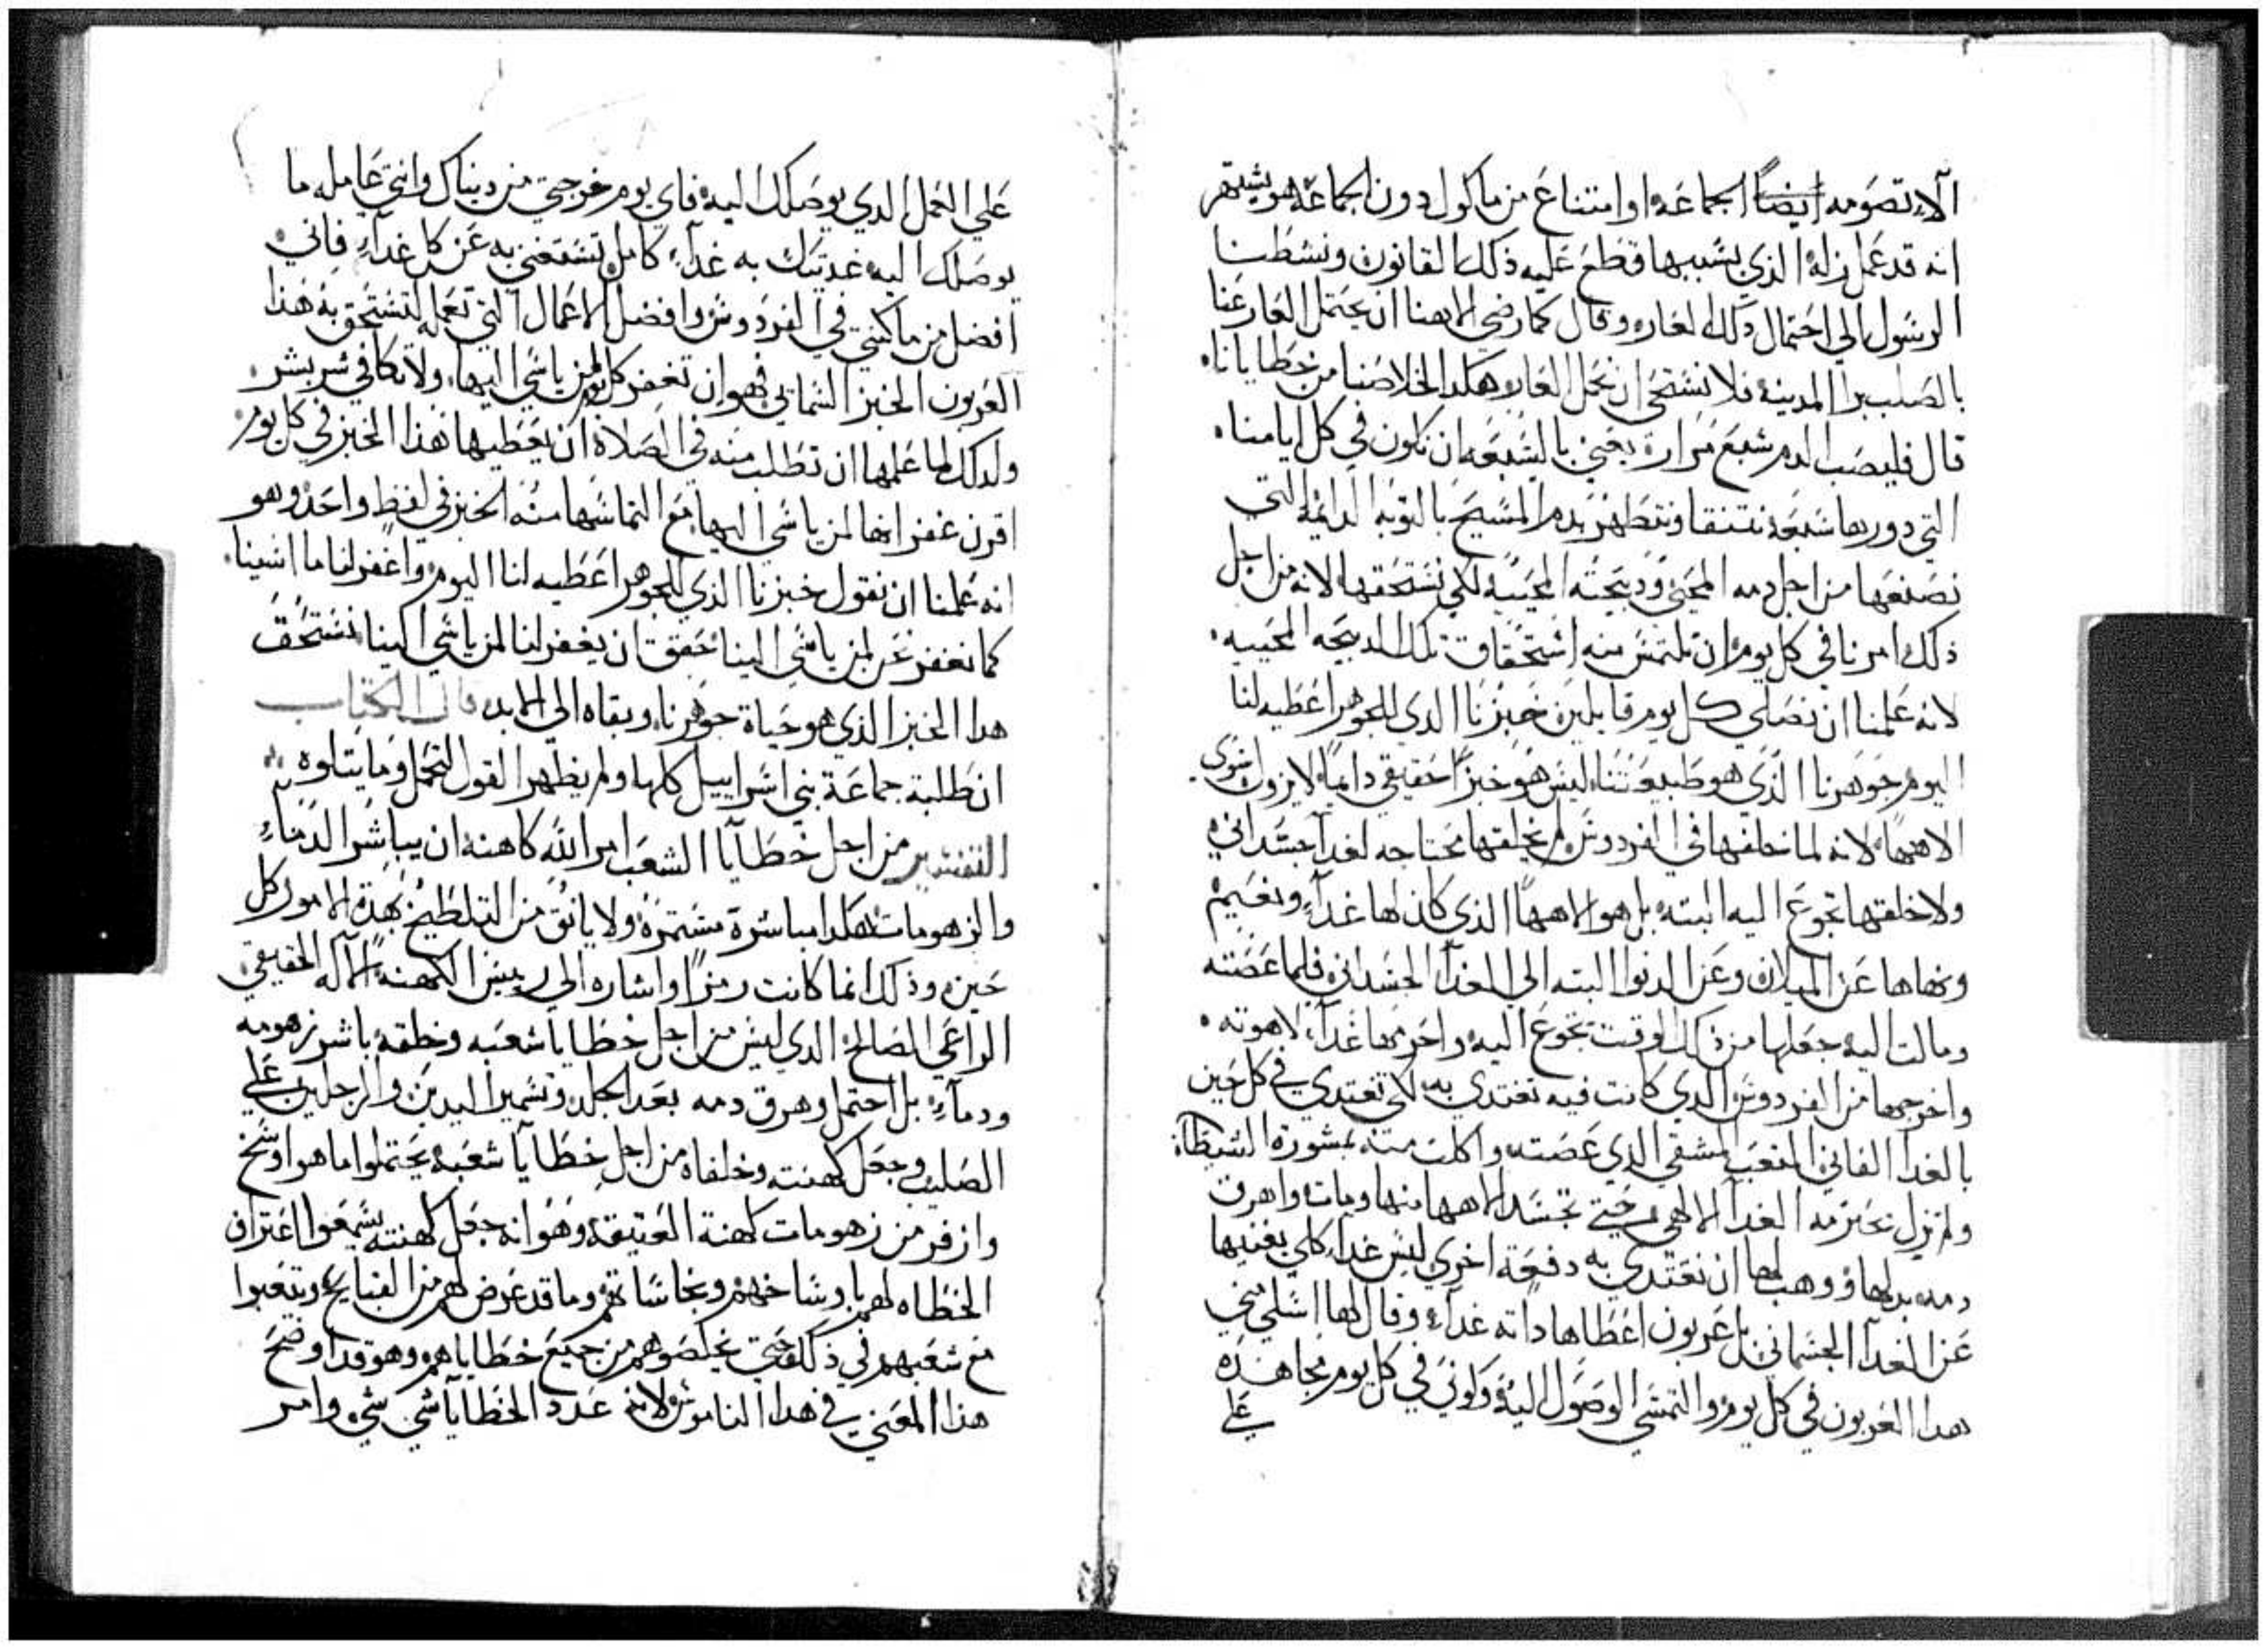 الا تصومه ايضاً الجماعه او امتناع من ماكول دون الجماعه هو يشتهر
انه قد عمل زله الذي بسببها قطع عليه ذلك القانون ونشطنا
الرسول الي احتمال ذلك العار وقال كما رضي الاهنا ان يحتمل العار عنا
بالصلب برا المدينه فلا نستحي ان نحمل العار هكدا لخلاصنا من خطايانا
قال فليصب الدم سبع مرارة يعني بالسبعه ان نكون في كل ايامنا
التي دورها سبعه نتنقا ونتطهر بدم المسيح بالتوبه الدايمه التي
نصنعها من اجل دمه المحيي ودبيحته المحييه لكي نستحقها لانه من اجل
ذلك امرنا في كل يوم ان نلتمس منه استحقاق تلك الدبيحه المحييه
لانه علمنا ان نصلي كل يوم قايلين خبزنا الدي للجوهر اعطيه لنا
اليوم جوهرنا الذي هو طبيعتنا ليس هو خبزاً حقيقي دايماً لا يزول سوي
الاهها لانه لما خلقها في الفردوس لم يخلقها محتاجه لغدآ جسداني
ولا خلقها تجوع اليه البته بل هو الاهها الذي كان لها غدآء ونعيم
ونهاها عن الميلان وعن الدنوا البته الي الغدآ الجسداني فلما عصته
ومالت اليه جعلها من ذلك الوقت تجوع اليه واحرمها غدآء لاهوته
واخرجها من الفردوس الدي كانت فيه تغتدي به لكي تغتدي في كل حين
بالغدا الفاني المتعب المشقي الدي عصته واكلت منه بمشورة الشيطان
ولم تزل محرمه الغدآ الالهي حتي تجسد الاهها منها ومات واهرق
دمه بدلها ووهب لها ان تغتدي به دفعة اخري ليس غدآء كلي يغنيها
عن الغدآ الجسماني بل عربون اعطاها داته غدآء وقال لها اسلي مني
هدا العربون في كل يوم والتمسي الوصول اليه وكوني في كل يوم مجاهده
علي
علي العمل الدي يوصلك اليه فاي يوم خرجتي من دنياك وانتي عامله ما
يوصلك اليه غديتك به غدآء كامل تستغني به عن كل غدآء فاني
افضل من ما كنتي في الفردوس وافضل الاعمال التي تعمله لتستحق به هذا
العربون الخبز السماتي فهو ان تغفر كل يوم لمن ياسي اليها ولا تكافي شر بشر
ولدلك لما علمها ان تطلب منه في الصلاة ان يعطيها هذا الخبز في كل يوم
اقرن غفرانها لمن ياسي اليها مع التماسها منه الخبز في لفظ واحد وهو
انه علمنا ان نقول خبزنا الذي للجوهر اعطيه لنا اليوم واغفر لنا ما اسينا
كما نغفر نحن لمن ياسي الينا حقق ان يغفر لنا لمن ياسي الينا نستحق
هدا الخبز الذي هو حياة جوهرنا وبقاه الي الابد قال الكتاب
ان طلبة جماعة بني اسراييل كلها ولم يظهر القول لتحمل وما يتلوه
التفسير من اجل خطايا الشعب امر الله كاهنه ان يباشر الدماء
والزهومات هكدا مباشرة مستمرة ولا يانق من التلطيخ بهذة الامور كل
حين وذلك انما كانت رمزاً واشاره الي رييس الكهنه الاله الحقيقي
الراعي الصالح الدي ليس من اجل خطايا شعبه وخلقه باشر زهومه
ودمآء بل احتمل وهرق دمه بعد الجلد وتشمير اليدين والرجلين علي
الصليب وجعل كهنته وخلفاه من اجل خطايا شعبه يحتملوا ما هو اوسخ
وازفر من زهومات كهنة العتيقه وهو انه جعل كهنته يسمعوا اعتراف
الخطاه لهم باوساخهم ونجاساتهم وما قد عرض لهم من القبايح ويتعبوا
مع شعبهم في ذلك حتي يخلصوهم من جميع خطاياهم وهو قد اوضح
هذا المعني في هدا الناموس لانه عدد الخطايا شي شي وامر